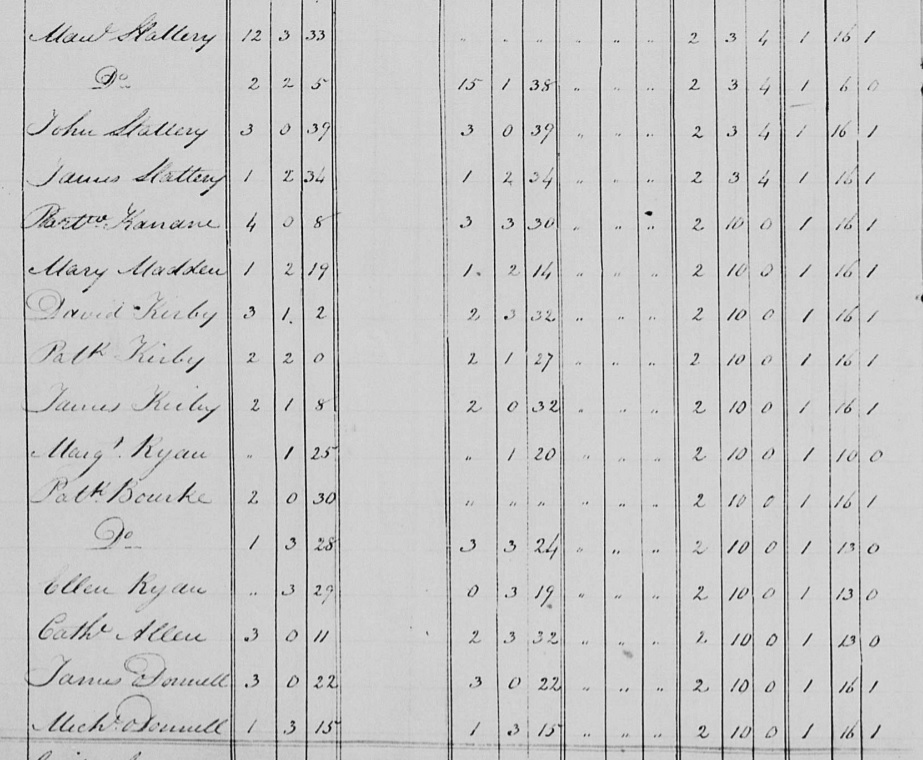 Maud Slattery 12 3 33 " " " " " " 2 3 4 1 16 1
Do 2 2 5 15 1 38 " " " 2 3 4 1 6 0
John Slattery 3 0 39 3 0 39 " " " 2 3 4 1 16 1
James Slattery 1 2 34 1 2 34 " " " 2 3 4 1 16 1
Bartw Kanane 4 0 8 3 3 30 " " " 2 10 0 1 16 1
Mary Madden 1 2 19 1 2 14 " " " 2 10 0 1 16 1
David Kirby 3 1 2 2 3 32 " " " 2 10 0 1 16 1
Patk Kirby 2 2 0 2 1 27 " " " 2 10 0 1 16 1
James Kirby 2 1 8 2 0 32 " " " 2 10 0 1 16 1
Margt. Ryan " 1 25 " 1 20 " " " 2 10 0 1 10 0
Patk. Bourke 2 0 30 " " " " " " 2 10 0 1 16 1
Do 1 3 28 3 3 24 " " " 2 10 0 1 13 0
Ellen Ryan " 3 29 0 3 19 " " " 2 10 0 1 13 0
Cathe Allen 3 0 11 2 3 32 " " " 2 10 0 1 13 0
James ODonnell 3 0 22 3 0 22 " " " 2 10 0 1 16 1
Michl. ODonnell 1 3 15 1 3 15 " " " 2 10 0 1 16 1